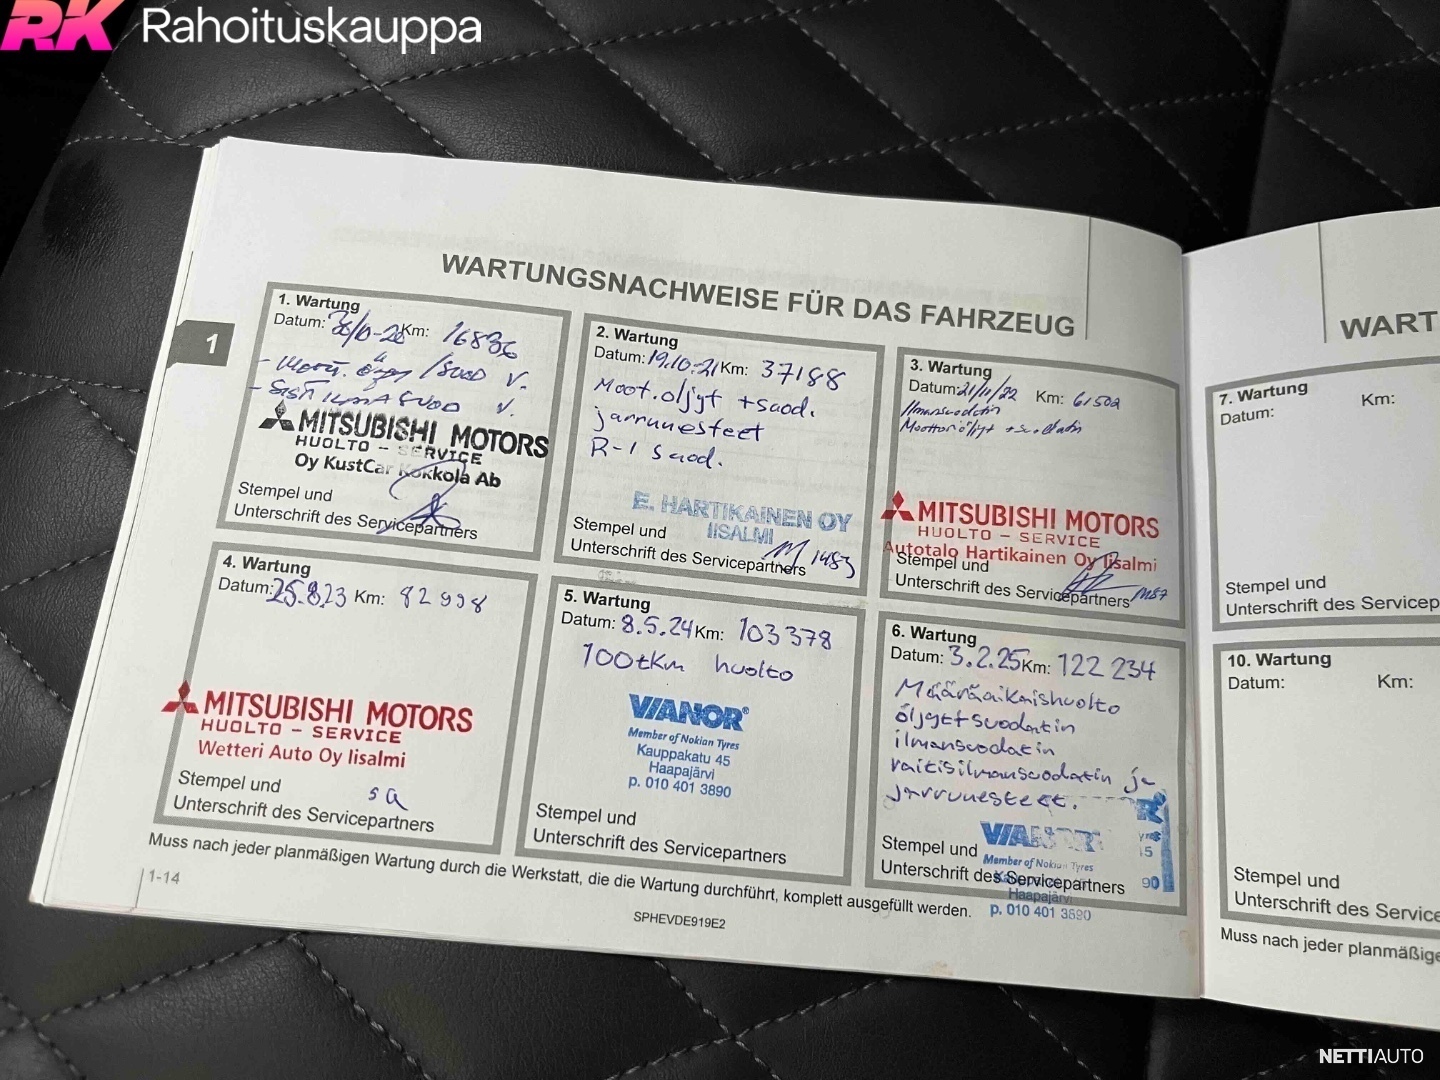 RK Rahoituskauppa
WARTUNGSNACHWEISE FÜR DAS FAHRZEUG
1
1. Wartung
Datum: Km: 16836
MITSUBISHI MOTORS
HUOLTO - SERVICE
Oy KustCar Kokkola Ab
Stempel und
Unterschrift des Servicepartners
2. Wartung
Datum: 19.10.21 Km: 37188
Moot.öljyt + suod.
jarrunesteet
R-I suod.
E. HARTIKAINEN OY
IISALMI
Stempel und
Unterschrift des Servicepartners
M 1483
3. Wartung
Datum: 21/11/22 Km: 61502
Ilmansuodatin
Moottoriöljyt + suodatin
MITSUBISHI MOTORS
HUOLTO - SERVICE
Autotalo Hartikainen Oy Iisalmi
Stempel und
Unterschrift des Servicepartners
4. Wartung
Datum: 25.8.23 Km: 82998
MITSUBISHI MOTORS
HUOLTO - SERVICE
Wetteri Auto Oy Iisalmi
Stempel und
sa
Unterschrift des Servicepartners
5. Wartung
Datum: 8.5.24 Km: 103378
100tkm huolto
VIANOR®
Member of Nokian Tyres
Kauppakatu 45
Haapajärvi
p. 010 401 3890
Stempel und
Unterschrift des Servicepartners
6. Wartung
Datum: 3.2.25 Km: 122 234
Määräaikaishuolto
öljyt+suodatin
ilmansuodatin
raitisilmansuodatin ja
jarrunesteet.
VIANOR
Member of Nokian Tyres
Haapajärvi
p. 010 401 3890
Stempel und
Unterschrift des Servicepartners
Muss nach jeder planmäßigen Wartung durch die Werkstatt, die die Wartung durchführt, komplett ausgefüllt werden.
1-14
SPHEVDE919E2
WART
7. Wartung
Datum: Km:
Stempel und
Unterschrift des Servicep
10. Wartung
Datum: Km:
Stempel und
Unterschrift des Service
Muss nach jeder planmäßige
NETTIAUTO